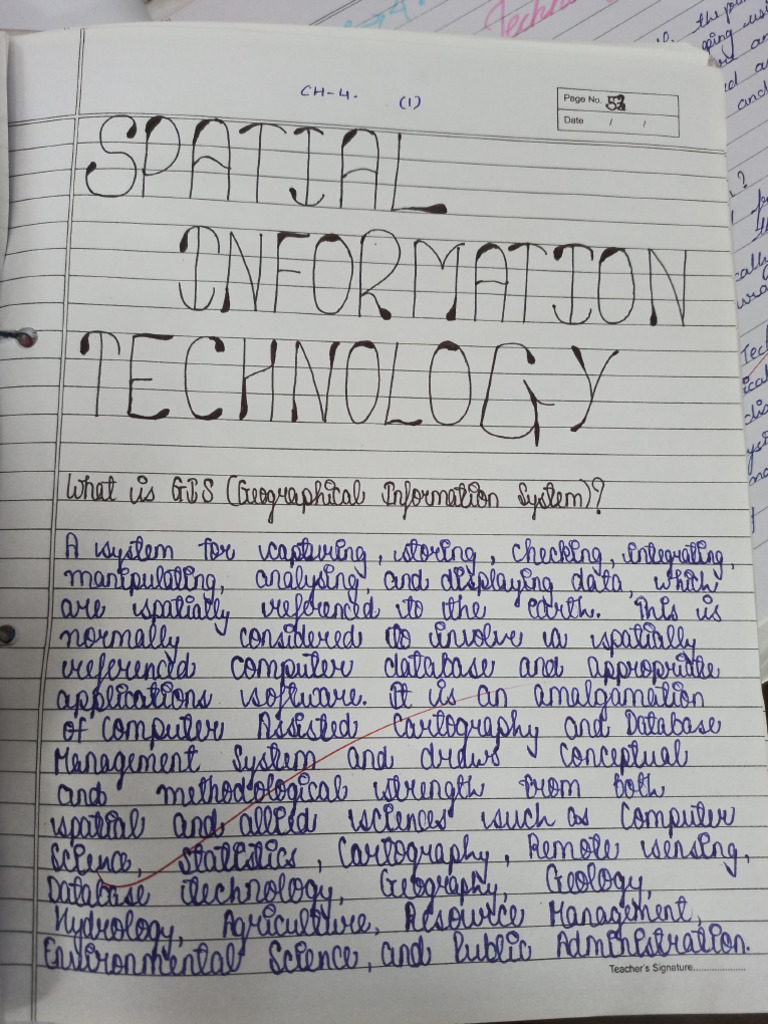 CH-4. (1)
Page No. 53
Date / /
SPATIAL
INFORMATION
TECHNOLOGY
What is GIS (Geographical Information System)?
A system for capturing, storing, checking, integrating,
manipulating, analysing, and displaying data, which
are spatially referenced to the earth. This is
normally considered to involve a spatially
referenced computer database and appropriate
applications software. It is an amalgamation
of Computer Assisted Cartography and Database
Management System and draws conceptual
and methodological strength from both
spatial and allied sciences such as Computer
Science, Statistics, Cartography, Remote sensing,
Database technology, Geography, Geology,
Hydrology, Agriculture, Resource Management,
Environmental Science, and Public Administration.
Teacher's Signature